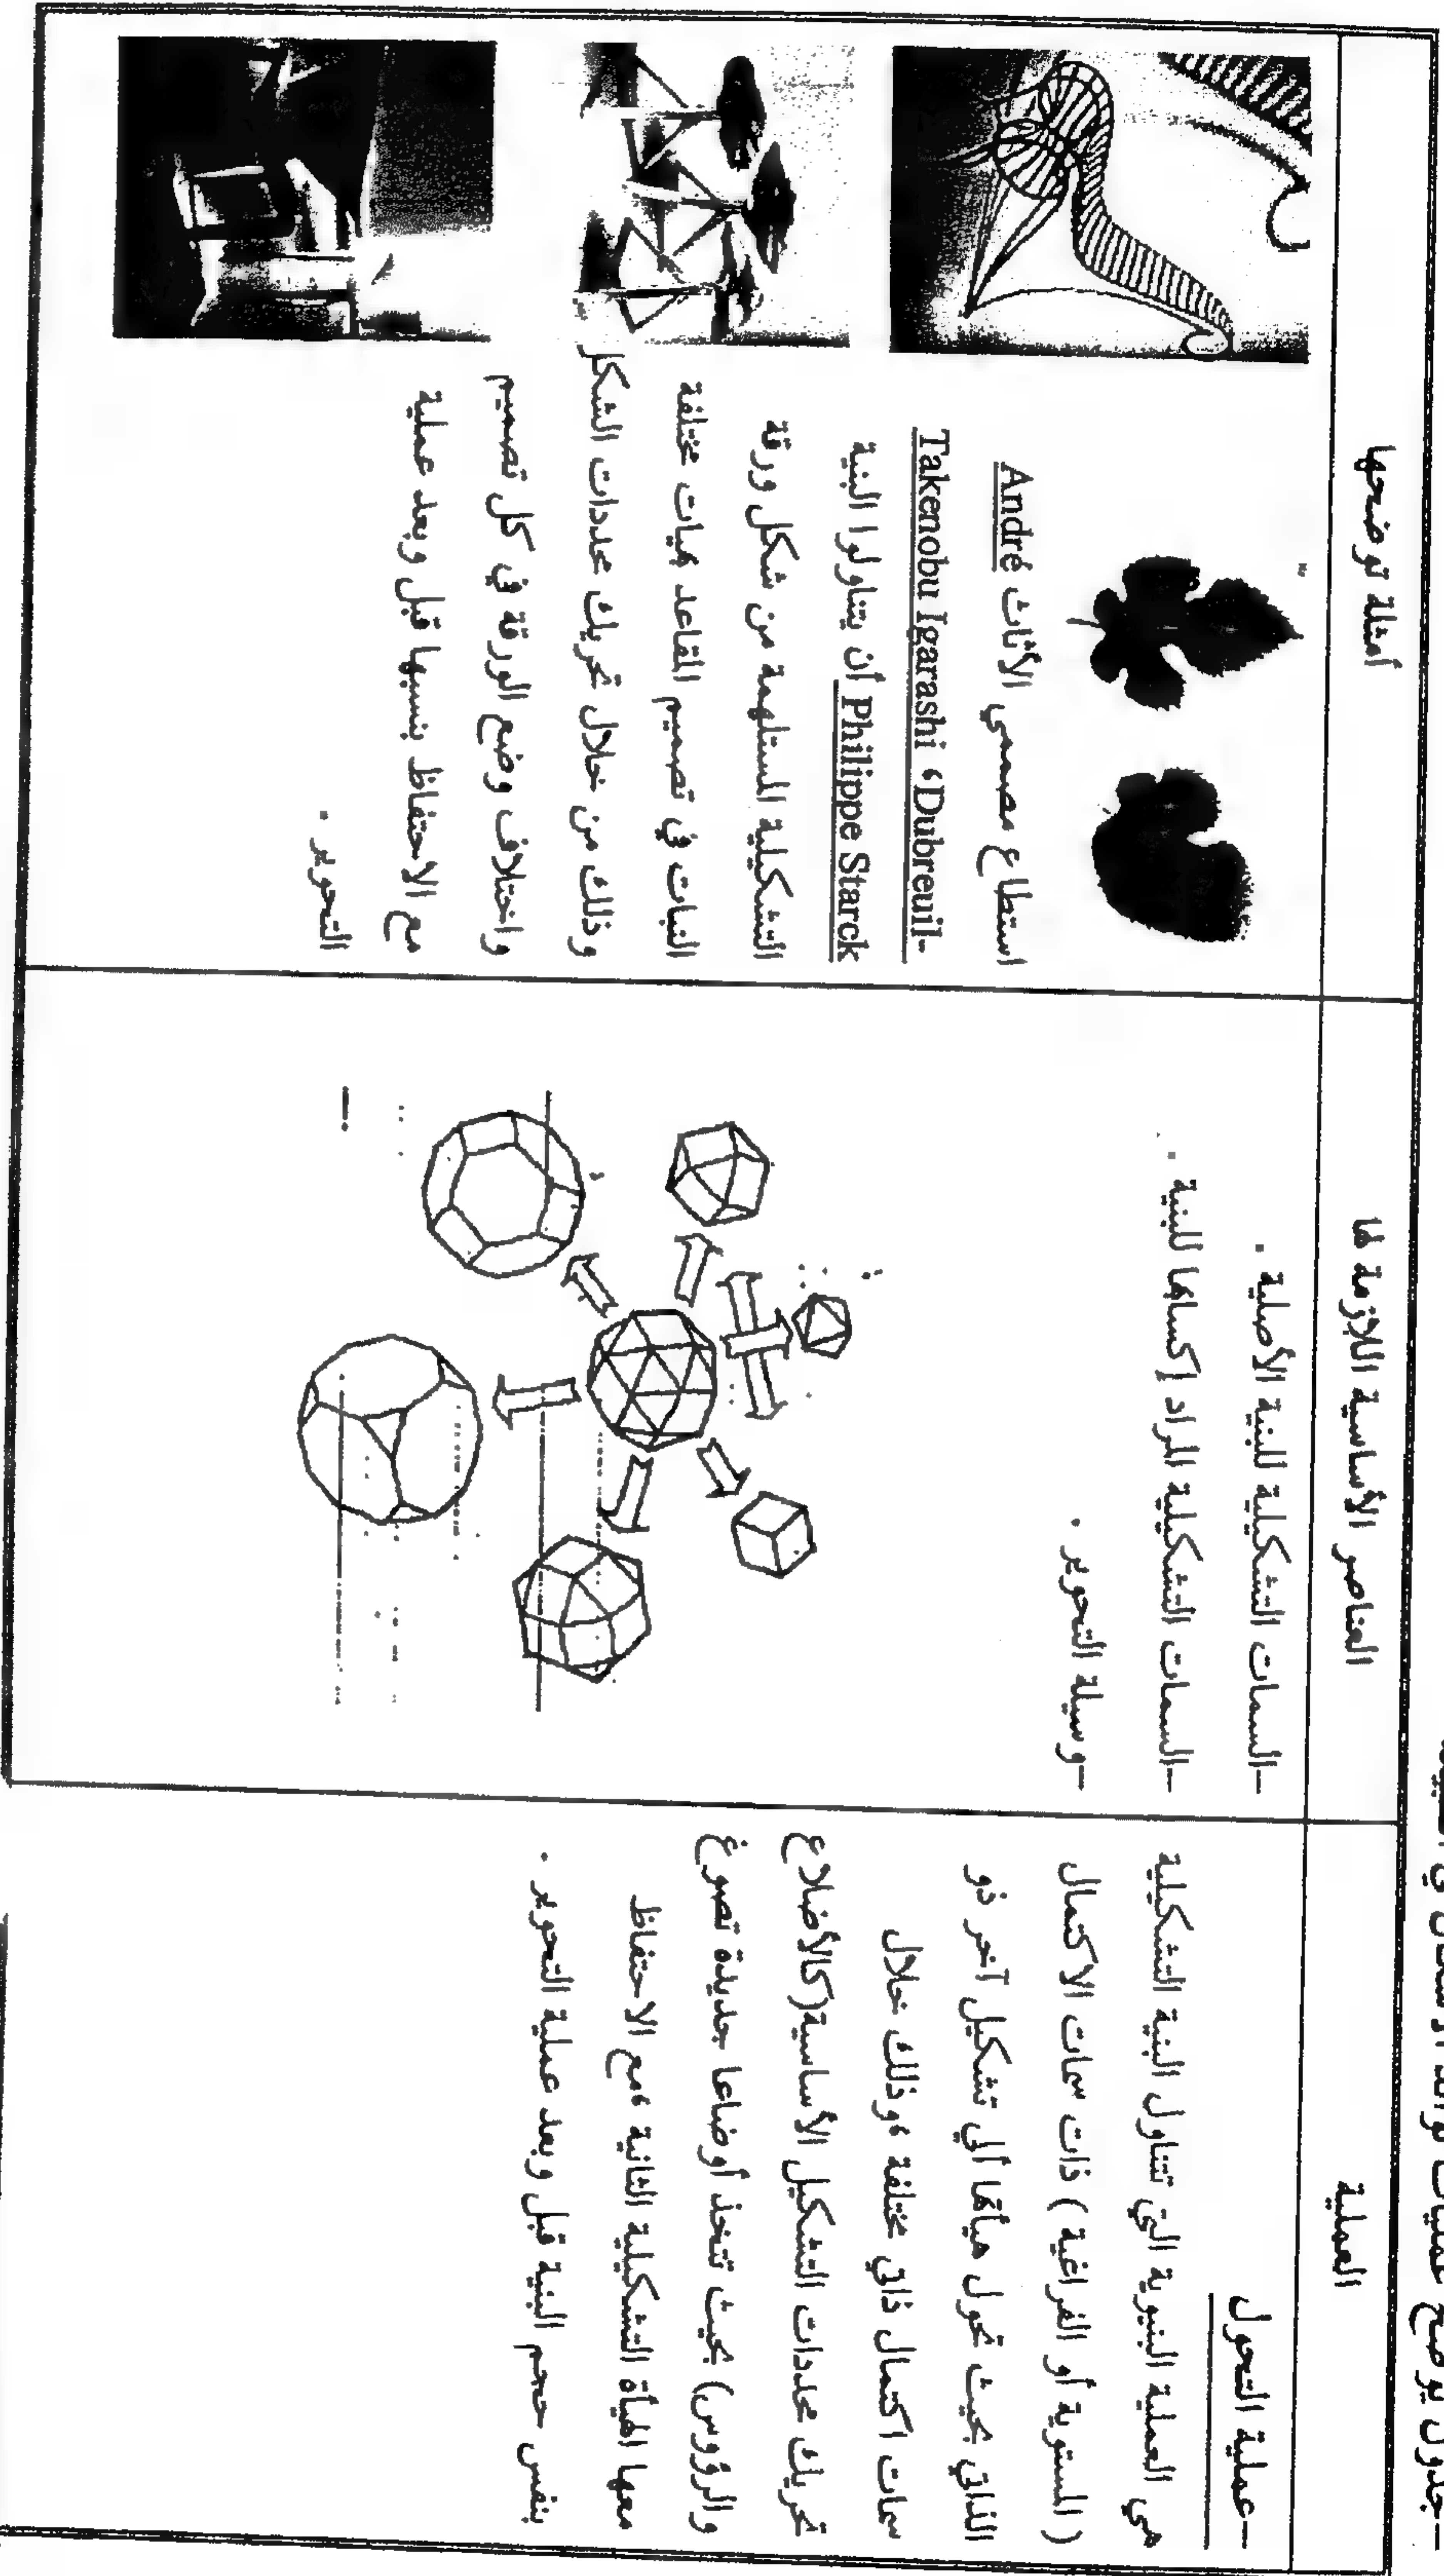 -جدول يوضح عمليات توالد الأشكال في الطبيعة
العملية
العناصر الأساسية اللازمة لها
أمثلة توضحها
-عملية التحول
هي العملية البنيوية التي تتناول البنية التشكيلية
( المستوية أو الفراغية ) ذات سمات الاكتمال
الذاتي بحيث تحول هيأتها ألي تشكيل آخر ذو
سمات اكتمال ذاتي مختلفة ،وذلك خلال
تحريك محددات التشكيل الأساسية(كالأضلاع
والرؤوس) بحيث تتخذ أوضاعا جديدة تصوغ
معها الهيأة التشكيلية الثانية ،مع الاحتفاظ
بنفس حجم البنية قبل وبعد عملية التحوير .
-السمات التشكيلية للبنية الأصلية .
-السمات التشكيلية المراد إكسابها للبنية .
-وسيلة التحوير .
استطاع مصممي الأثاث André
Takenobu Igarashi ،Dubreuil-
Philippe Starck أن يتناولوا البنية
التشكيلية المستلهمة من شكل ورقة
النبات في تصميم المقاعد بهيات مختلفة
وذلك من خلال تحريك محددات الشكل
واختلاف وضع الورقة في كل تصميم
مع الاحتفاظ بنسبها قبل وبعد عملية
التحوير .